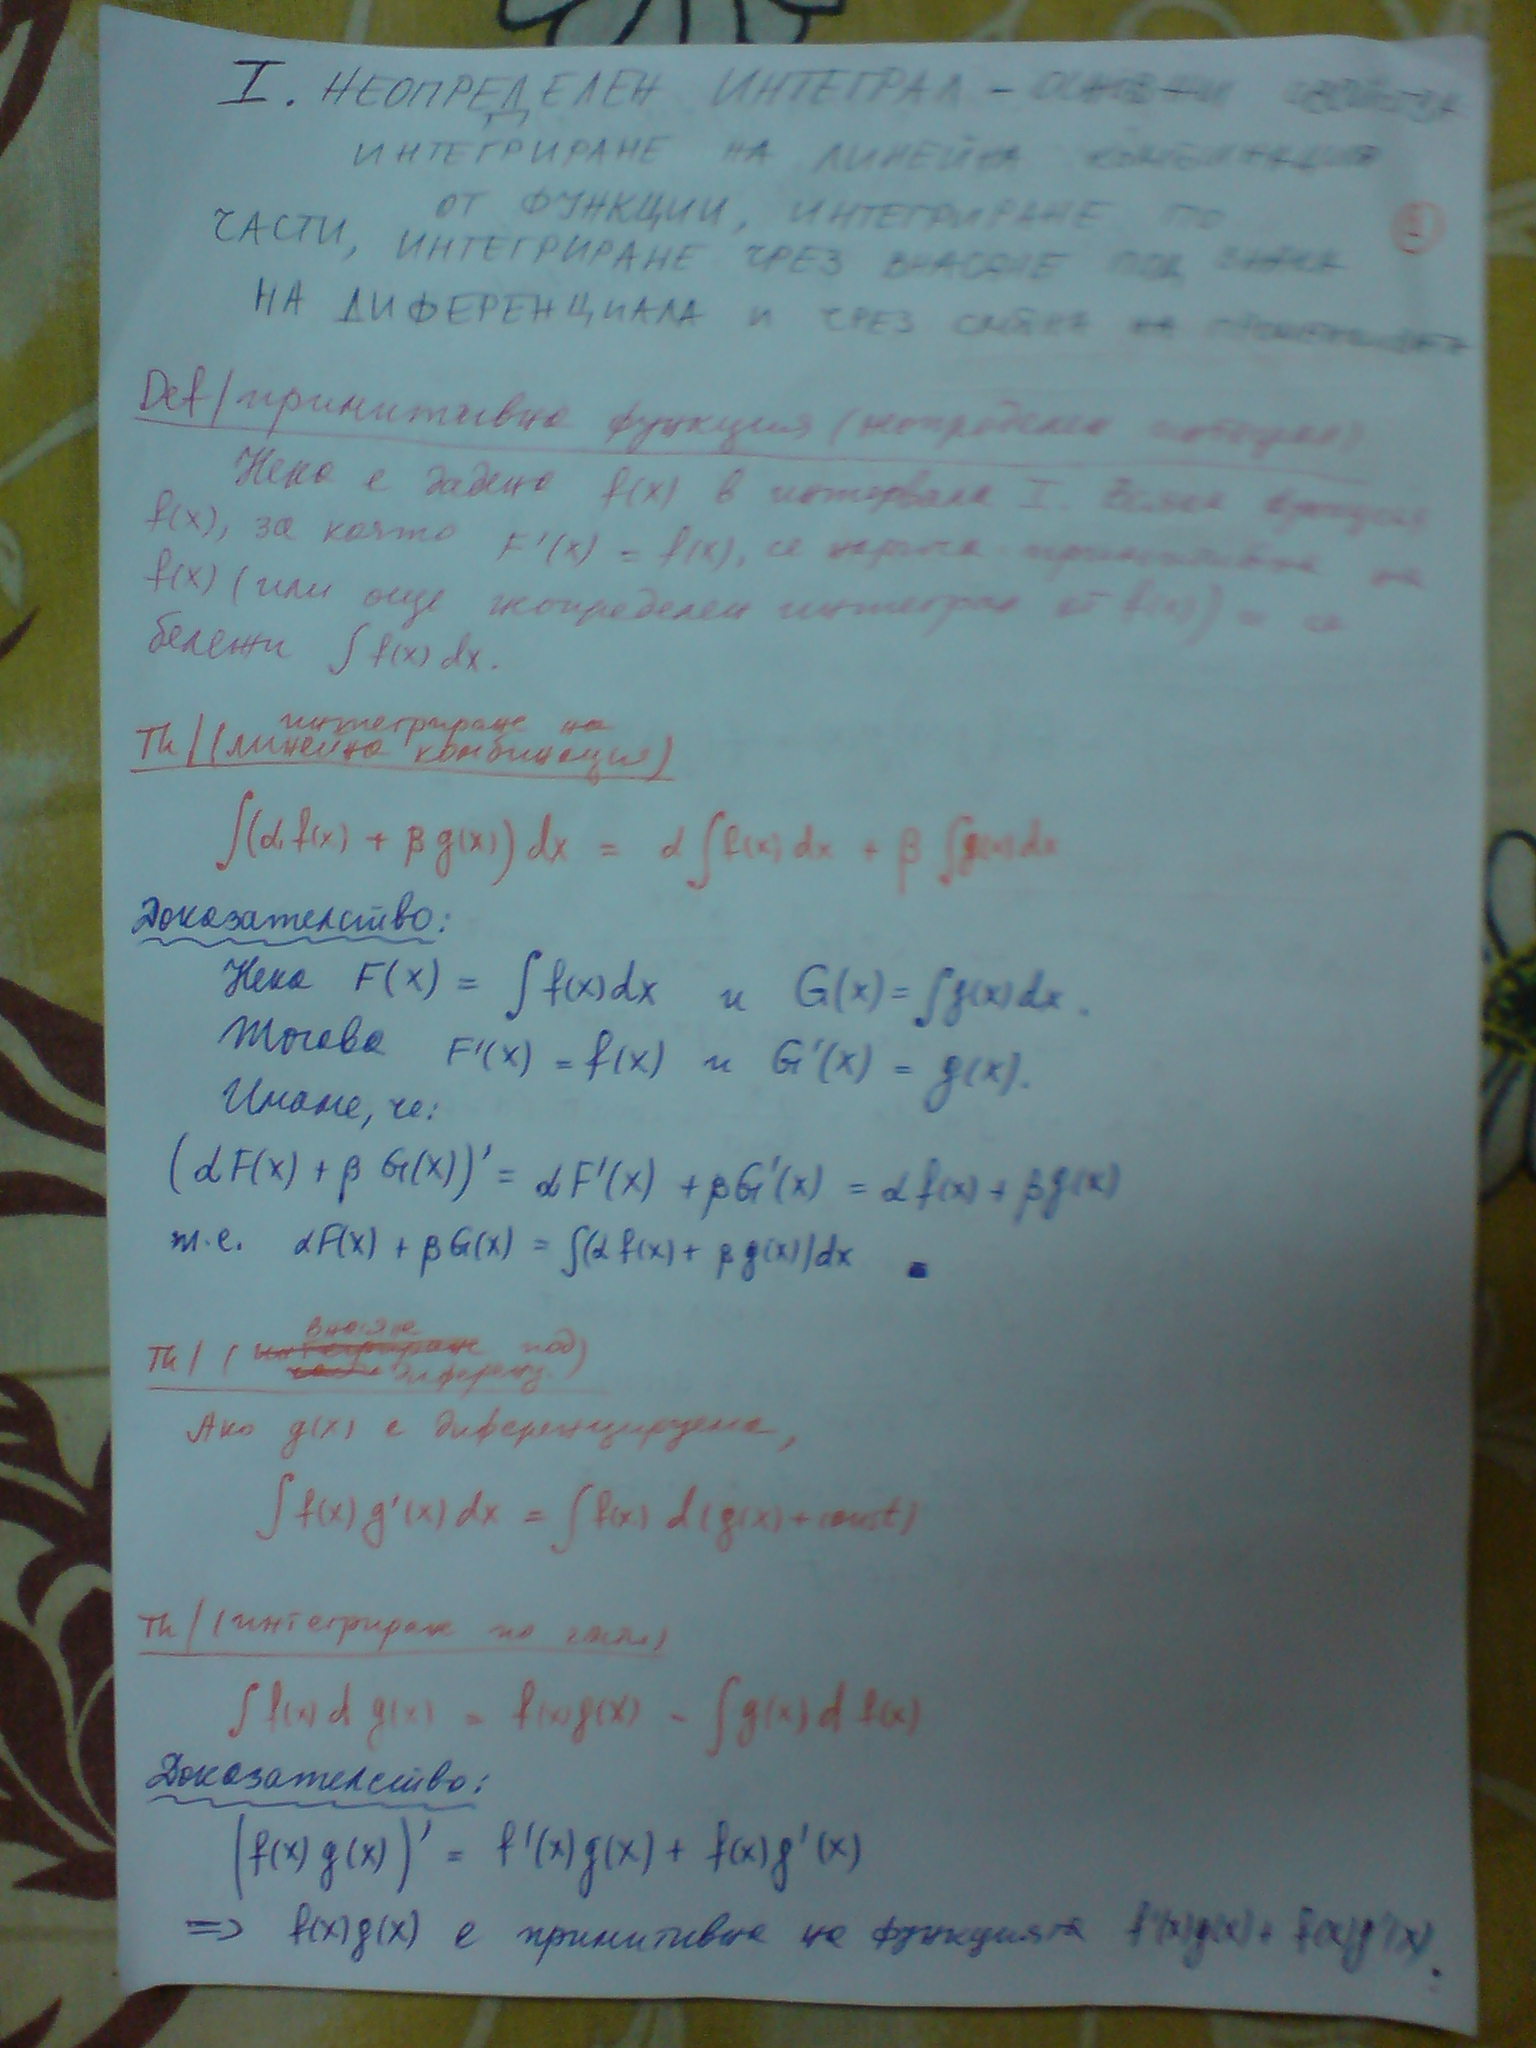 I. НЕОПРЕДЕЛЕН ИНТЕГРАЛ - ОСНОВНИ СВОЙСТВА
ИНТЕГРИРАНЕ НА ЛИНЕЙНА КОМБИНАЦИЯ
ОТ ФУНКЦИИ, ИНТЕГРИРАНЕ ПО
ЧАСТИ, ИНТЕГРИРАНЕ ЧРЕЗ ВНАСЯНЕ ПОД ЗНАКА
НА ДИФЕРЕНЦИАЛА И ЧРЕЗ СМЯНА НА ПРОМЕНЛИВАТА
Def / примитивна функция (неопределен интеграл)
Нека е дадена f(x) в интервала I. Всяка функция
f(x), за която F'(x) = f(x), се нарича примитивна на
f(x) (или още неопределен интеграл от f(x)) и се
бележи ∫ f(x) dx.
Th / (интегриране на
линейна комбинация)
∫(α f(x) + β g(x)) dx = α ∫ f(x) dx + β ∫ g(x) dx
Доказателство:
Нека F(x) = ∫ f(x) dx и G(x) = ∫ g(x) dx.
Тогава F'(x) = f(x) и G'(x) = g(x).
Имаме, че:
(αF(x) + β G(x))' = αF'(x) + βG'(x) = αf(x) + βg(x)
т.е. αF(x) + βG(x) = ∫(αf(x) + βg(x))dx
Th / (внасяне под
диференц.)
Ако g(x) е диференцируема,
∫ f(x) g'(x) dx = ∫ f(x) d(g(x) + const)
Th / (интегриране по части)
∫ f(x) d g(x) = f(x)g(x) - ∫ g(x) d f(x)
Доказателство:
(f(x) g(x))' = f'(x)g(x) + f(x)g'(x)
=> f(x)g(x) е примитивна на функцията f'(x)g(x) + f(x)g'(x).